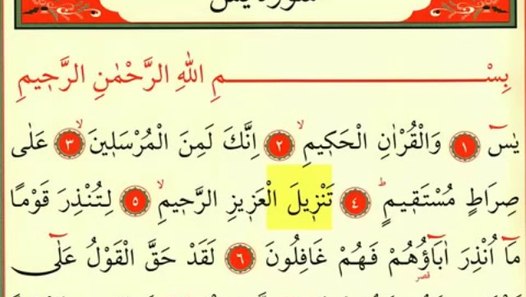 بِسْمِ اللّٰهِ الرَّحْمٰنِ الرَّح۪يمِ
يٰسٓ ﴿١﴾ وَالْقُرْاٰنِ الْحَك۪يمِۙ ﴿٢﴾ اِنَّكَ لَمِنَ الْمُرْسَل۪ينَۙ ﴿٣﴾ عَلٰى
صِرَاطٍ مُسْتَق۪يمٍۜ ﴿٤﴾ تَنْز۪يلَ الْعَز۪يزِ الرَّح۪يمِۙ ﴿٥﴾ لِتُنْذِرَ قَوْمًا
مَٓا اُنْذِرَ اٰبَٓاؤُ۬هُمْ فَهُمْ غَافِلُونَ ﴿٦﴾ لَقَدْ حَقَّ الْقَوْلُ عَلٰٓى
قصر